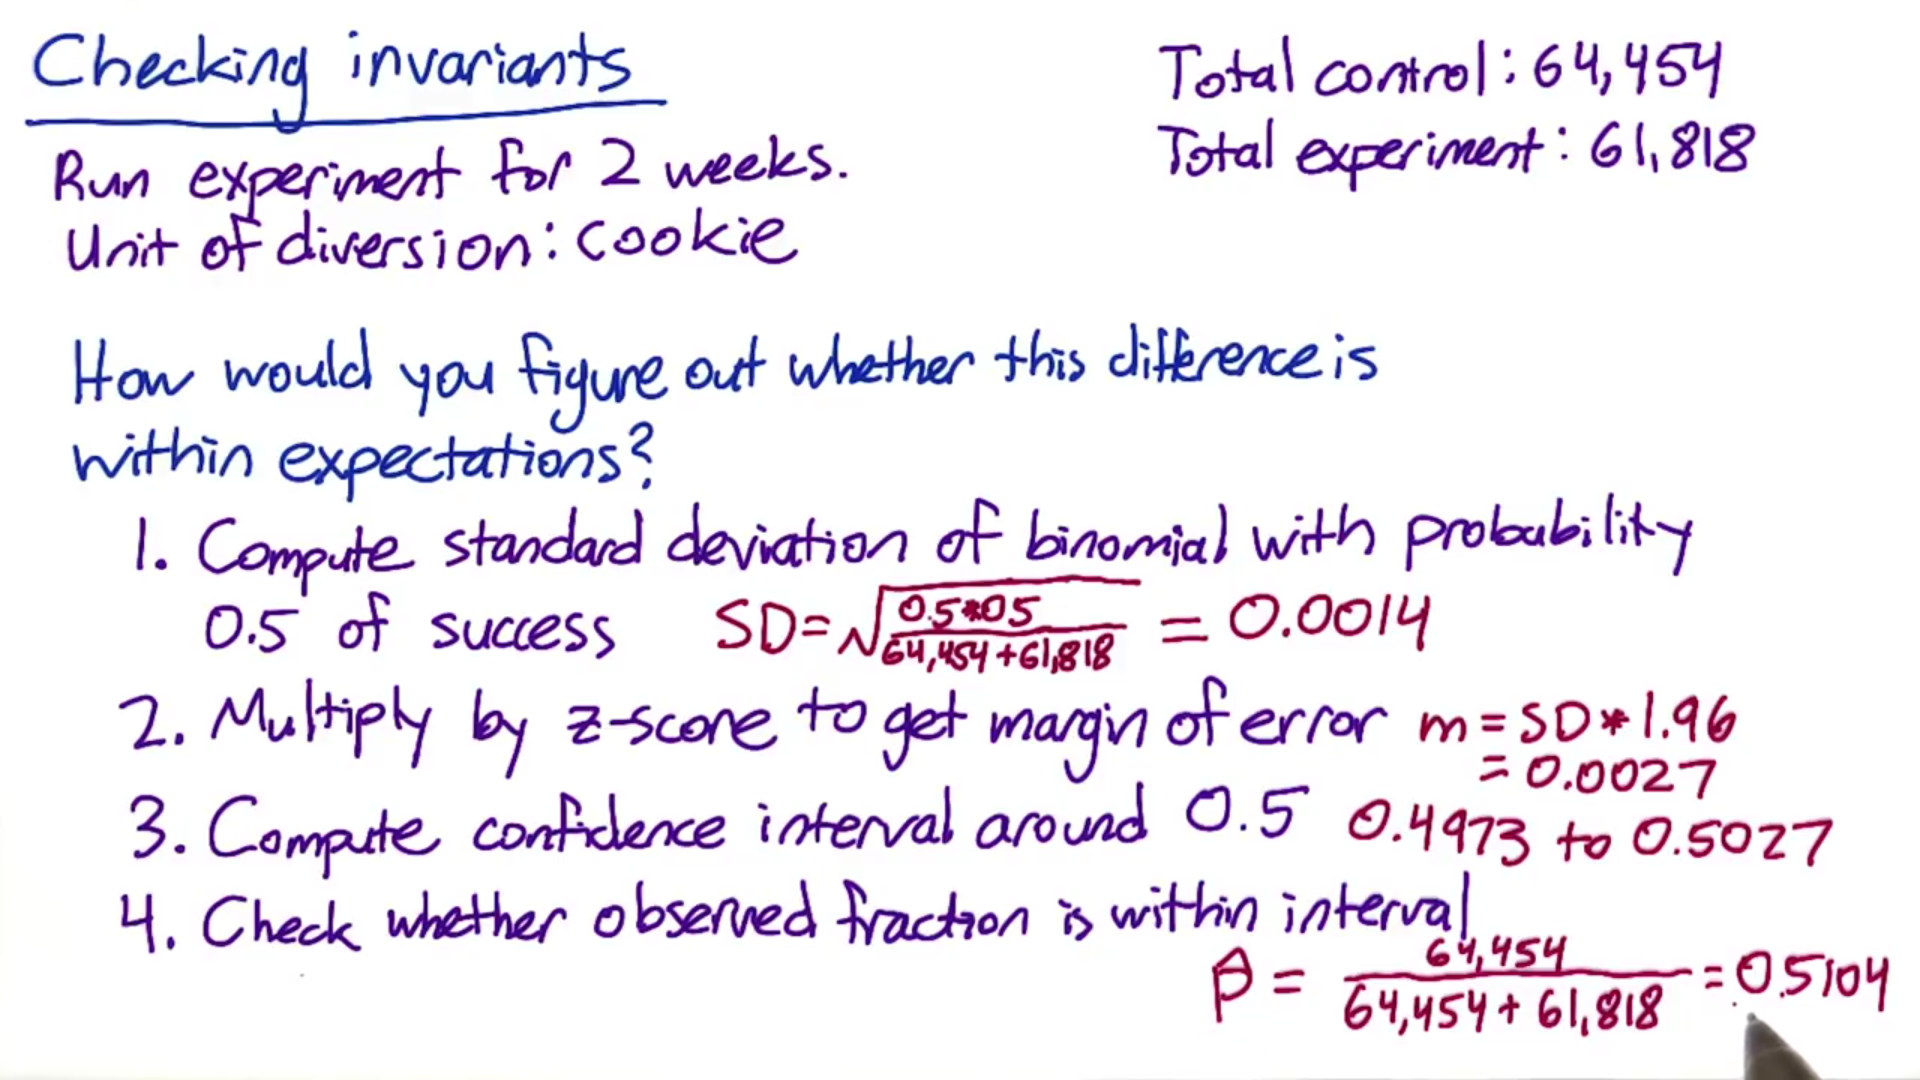 Checking invariants
Total control: 64,454
Total experiment: 61,818
Run experiment for 2 weeks.
Unit of diversion: cookie
How would you figure out whether this difference is
within expectations?
1. Compute standard deviation of binomial with probability
0.5 of success SD = √(0.5*0.5 / 64,454+61,818) = 0.0014
2. Multiply by z-score to get margin of error m = SD * 1.96
= 0.0027
3. Compute confidence interval around 0.5 0.4973 to 0.5027
4. Check whether observed fraction is within interval
p̂ = 64,454 / 64,454 + 61,818 = 0.5104